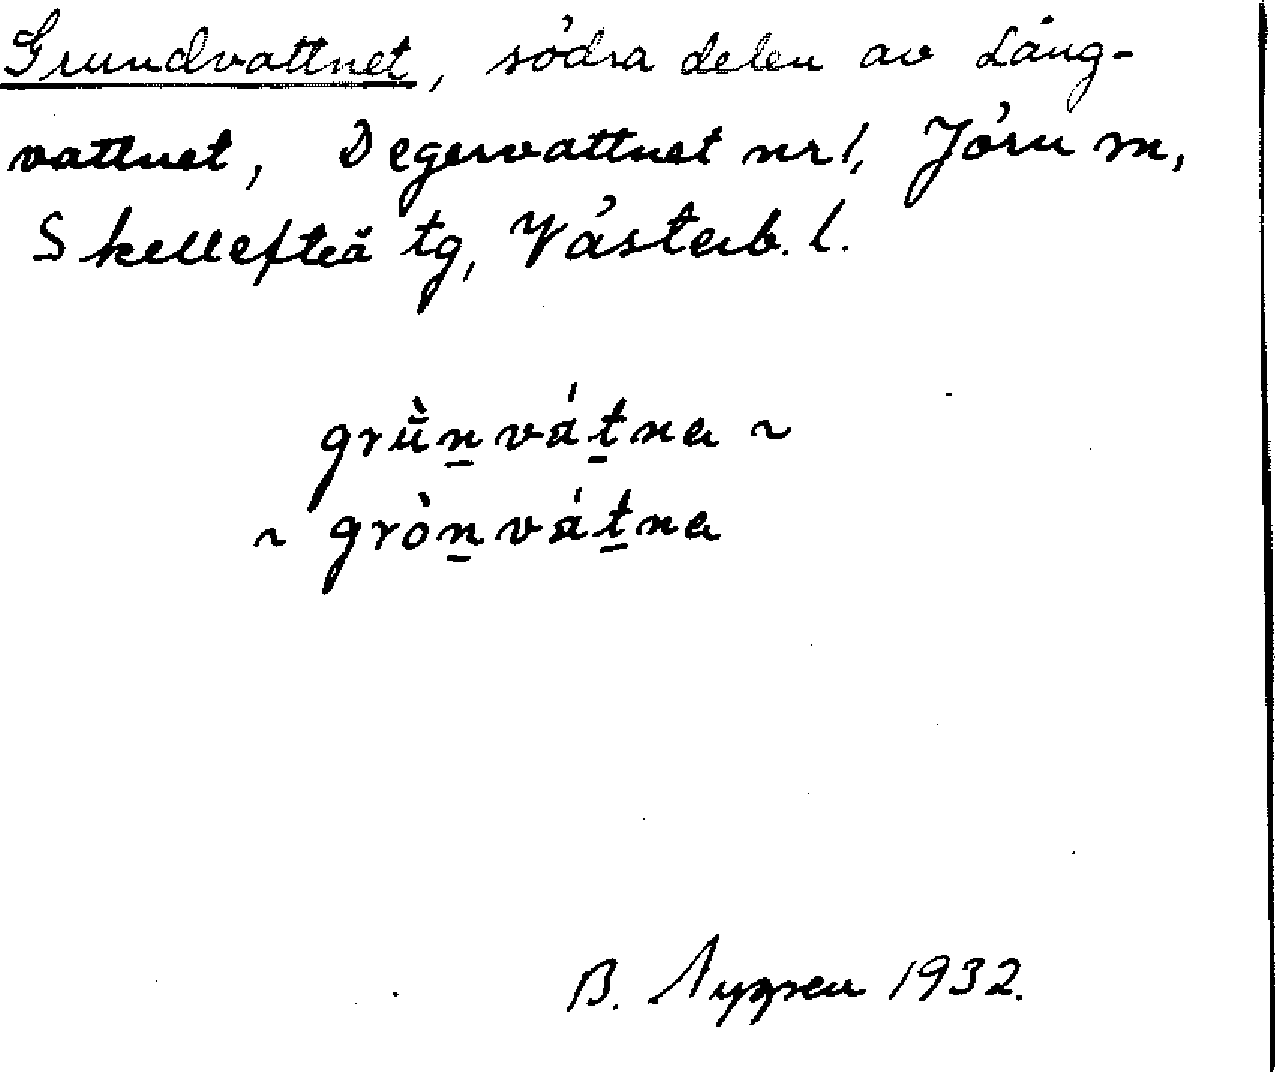 Grundvattnet, södra delen av Lång-
vattnet, Degervattnet nr 1, Jörn sn,
Skellefteå tg, Västerb. l.
grǜn̲vát̲na ~
~ gròn̲vát̲na
B. 1932.